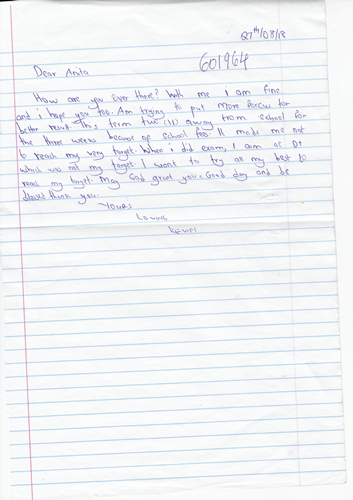 27th/08/18
601964
Dear Anita
How are you over there? With me I am fine
and i hope you too. Am trying to put more focus for
better result. This term two (II) away from school for
the three weeks because of school fees It made me not
to reach my very target. When i did exam, I am at D+
which was not my target I want to try all my best to
reach my target. May God great you. Good day and be
thank you.
YOURS
LOVING